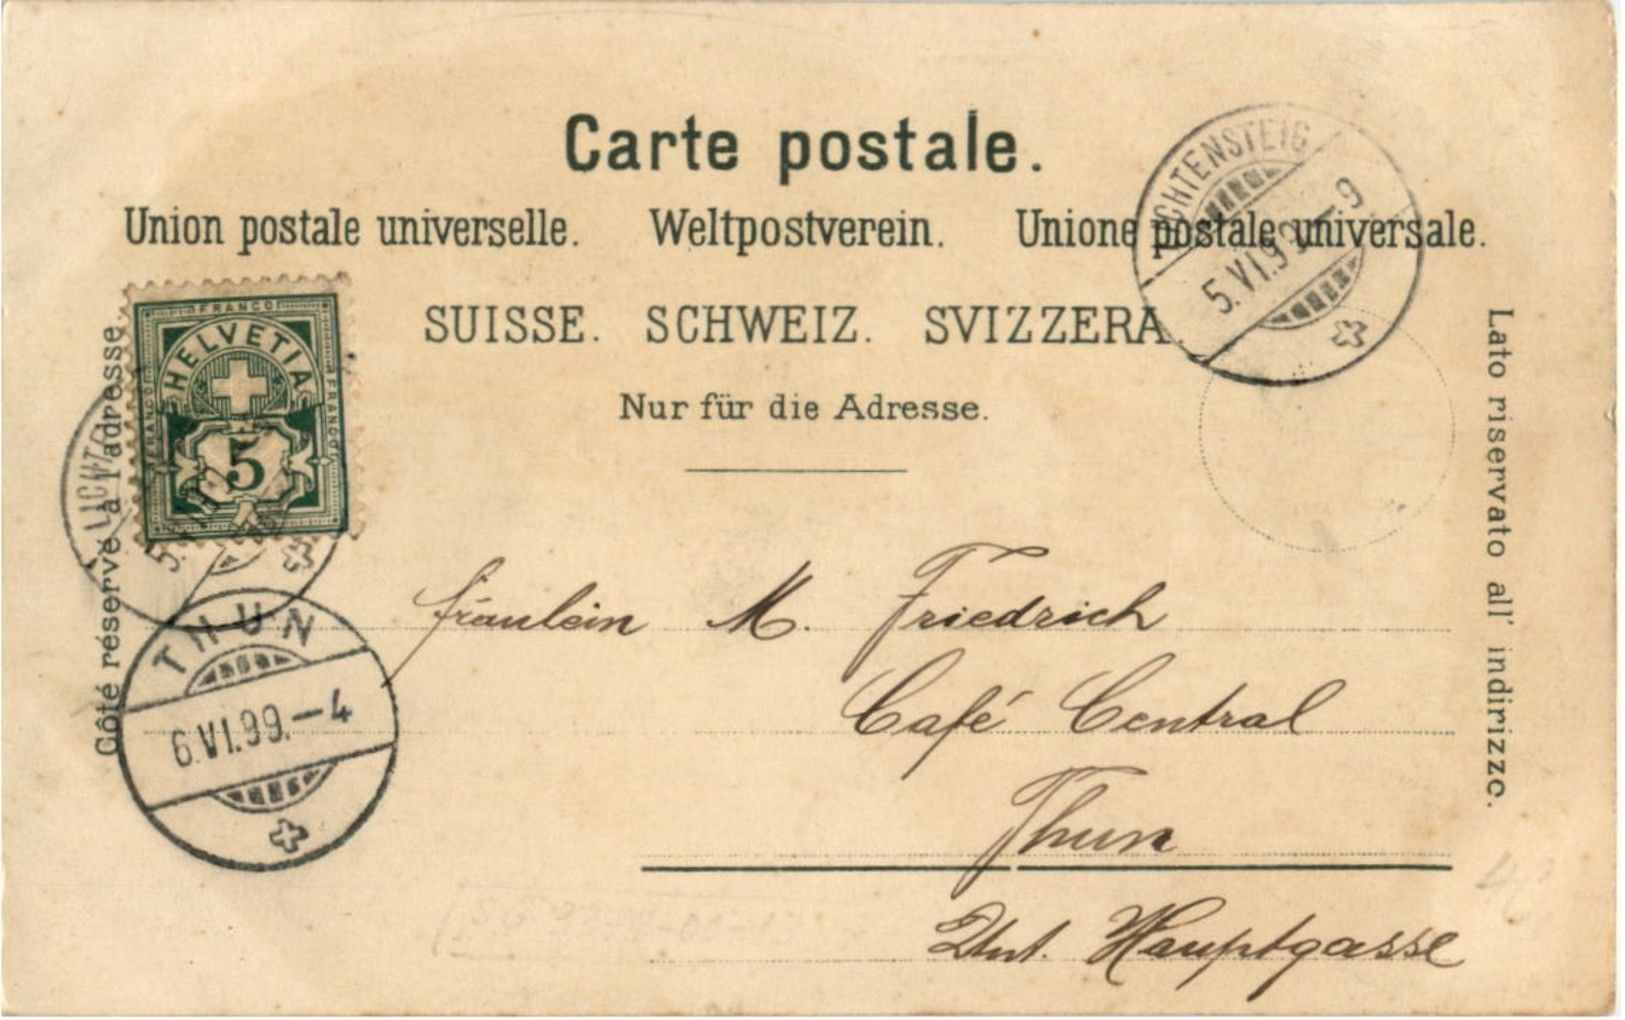 Carte postale.
Union postale universelle. Weltpostverein. Unione postale universale.
SUISSE. SCHWEIZ. SVIZZERA.
Nur für die Adresse.
Côté réservé à l'adresse
Lato riservato all' indirizzo.
FRANCO
FRANCO
FRANCO
HELVETIA
5
LICHTENSTEIG
5.VI.99–9
LICHT
5.
THUN
6.VI.99.–4
Fräulein M. Friedrich
Café Central
Thun
Unt. Hauptgasse